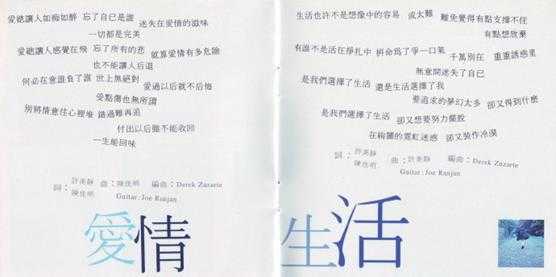 愛總讓人如痴如醉 忘了自已是誰 迷失在愛情的滋味
一切都是完美
愛總讓人感覺在飛 忘了所有的悲 就算愛情有多危險
也不能讓人后退
何必在意誰負了誰 世上無絕對 愛過以后就不后悔
受點傷也無所謂
別將情意往心裡堆 錯過難再追
付出以后難不能收回
一生能回味
詞：許美靜 陳佳明 曲：陳佳明 編曲：Derek Zuzarte
Guitar: Joe Ranjan
愛情
生活也許不是想像中的容易 或太難 難免覺得有點支撐不住
有點想放棄
有誰不是活在掙扎中 拼命爲了爭一口氣 千萬別在 重重誘惑里
無意間迷失了自已
是我們選擇了生活 還是生活選擇了我
要追求的夢幻太多 卻又得到什麼
是我們選擇了生活 卻又想要努力擺脫
在絢爛的霓虹迷惑 卻又裝作冷漠
詞：許美靜 陳佳明 曲：許美靜 編曲：Derek Zuzarte
Guitar: Joe Ranjan
生活